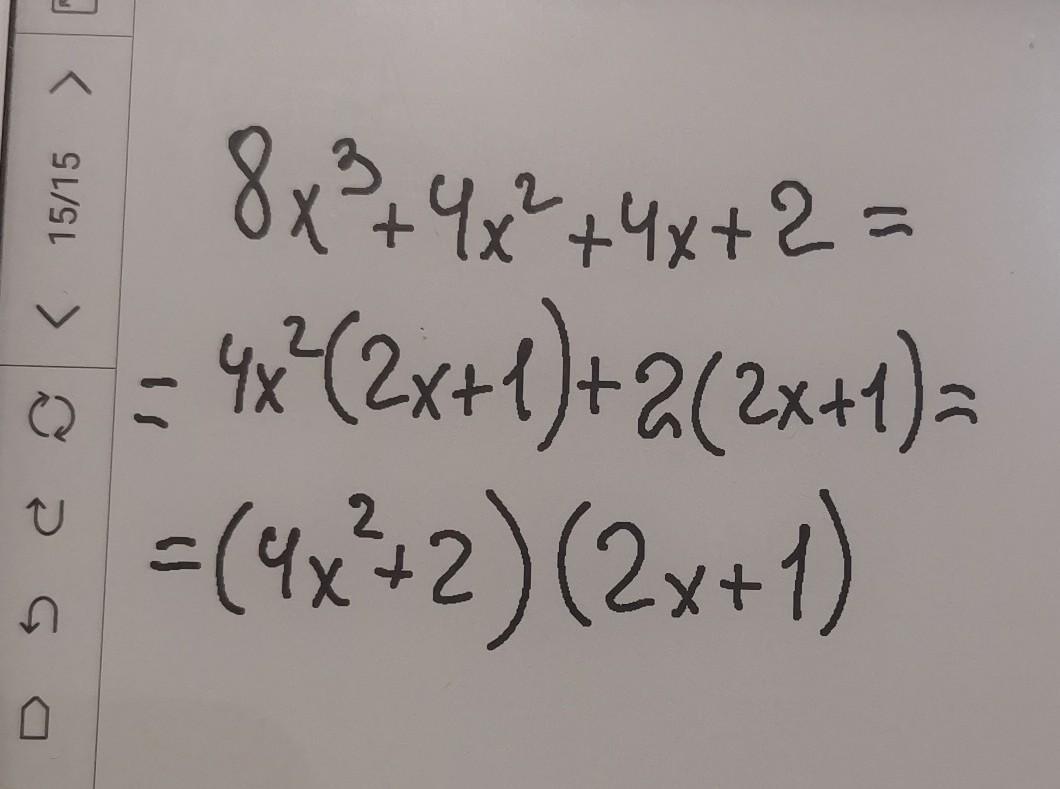 15/15
8x³+4x²+4x+2=
=4x²(2x+1)+2(2x+1)=
=(4x²+2)(2x+1)